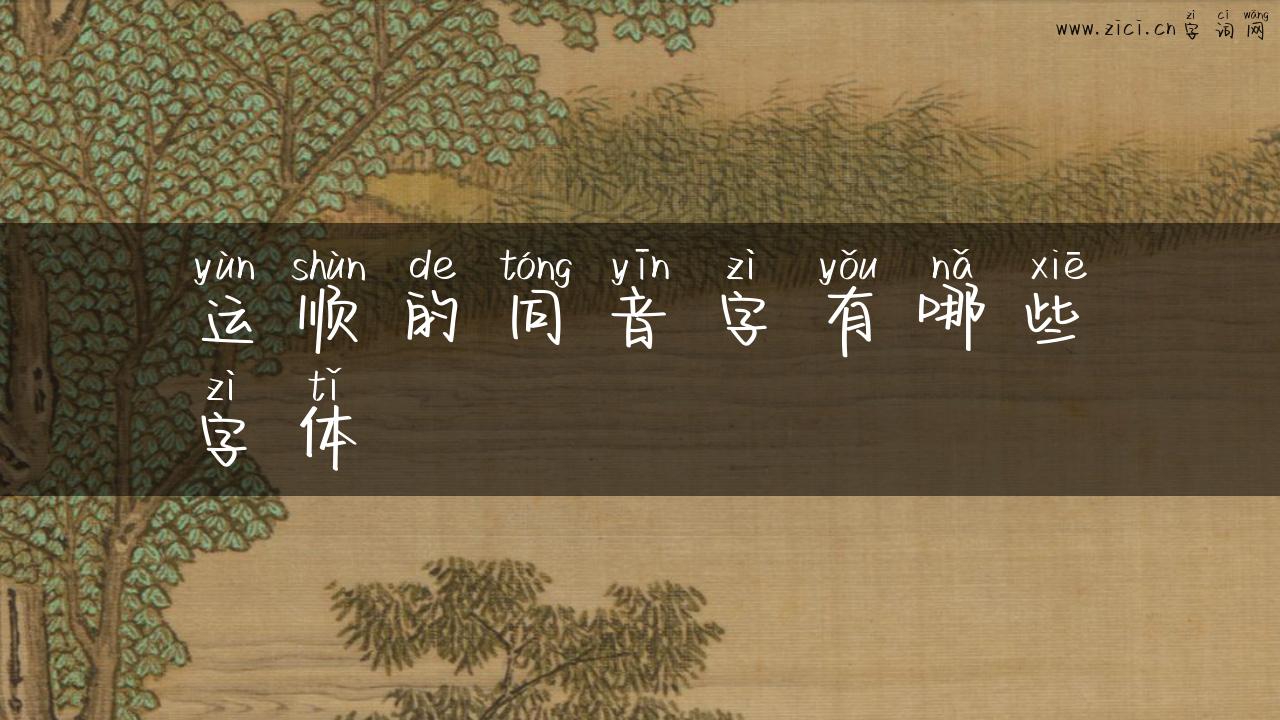 zì cí wǎng
www.zici.cn字词网
yùn shùn de tóng yīn zì yǒu nǎ xiē
运顺的同音字有哪些
zì tǐ
字体